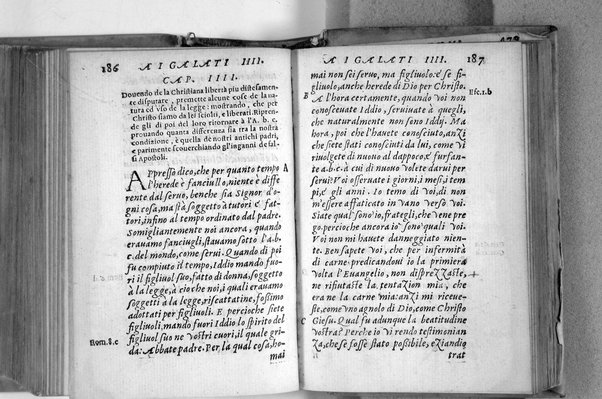 186 A I GALATI IIII.
CAP. IIII.
Douendo de la Christiana libertà piu distesamen-
te disputare, premette alcune cose de la na-
tura ed vso de la legge: mostrando, che per
Christo siamo da lei sciolti, e liberati. Ripren-
de gli di poi del loro ritornare à l'A. b. c.
prouando quanta differenza sia tra la nostra
condizione, e quella de nostri antichi padri,
e parimente scouerchiando gl'inganni de fal-
si Apostoli.
APpresso dico, che per quanto tempo A
l'herede è fanciullo, niente è diffe
rente dal seruo, benche sia Signor d'o-
gni cosa, ma stà soggetto à tutori e fat-
tori, infino al tempo ordinato dal padre.
Somigliantemente noi ancora, quando
erauamo fanciugli, stauamo sotto l'a.b.
c. del mondo, come serui. Quando di poi
fu compiuto il tempo, Iddio mandò fuo-
ri il figliuol suo, fatto di donna, soggetto
à la legge, à cio che noi, quali erauamo
soggetti à la legge, riscattatine, fossimo
adottati per figliuoli. E percioche siete
figliuoli, mandò fuori Iddio lo spirito del
figliuol suo ne vostri cuori, il quale gri-
Rom. 8. c da: Abbate padre. Per la qual cosa, ho-
mai
A I GALATI IIII. 187
mai non sei seruo, ma figliuolo: e se fi-
gliuolo, anche herede di Dio per Christo.
B A l'hora certamente, quando voi non Esc. 1. b
conosceuate Iddio, seruiuate à quegli,
che naturalmente non sono Iddij. Ma
hora, poi che l'hauete conosciuto, anzi
che siete stati conosciuti da lui, come vi
riuolgete di nuouo al dappoco, e furfan-
te a.b.c. à cui di nuouo volete darui per
serui? Voi osseruate i giorni, i mesi, i tem
pi, e gli anni. Io temo di voi, di non
m'essere affaticato in vano verso voi.
Siate qual sono io, frategli, che vene pre
go. percioche ancora io sono quali voi.
Voi non mi hauete danneggiato nien-
te. Ben sapete voi, che per infermità
di carne predicandoui io la primiera
volta l'Euangelio, non disprezzaste, +
ne rifiutaste la tentazion mia, che
era ne la carne mia: anzi mi riceue-
ste, come vno agnolo di Dio, come Christo
C Giesu. Qual fu adunque la beatitudine
vostra? Perche io vi rendo testimonian
za, che se fosse stato possibile, eziandio
trat